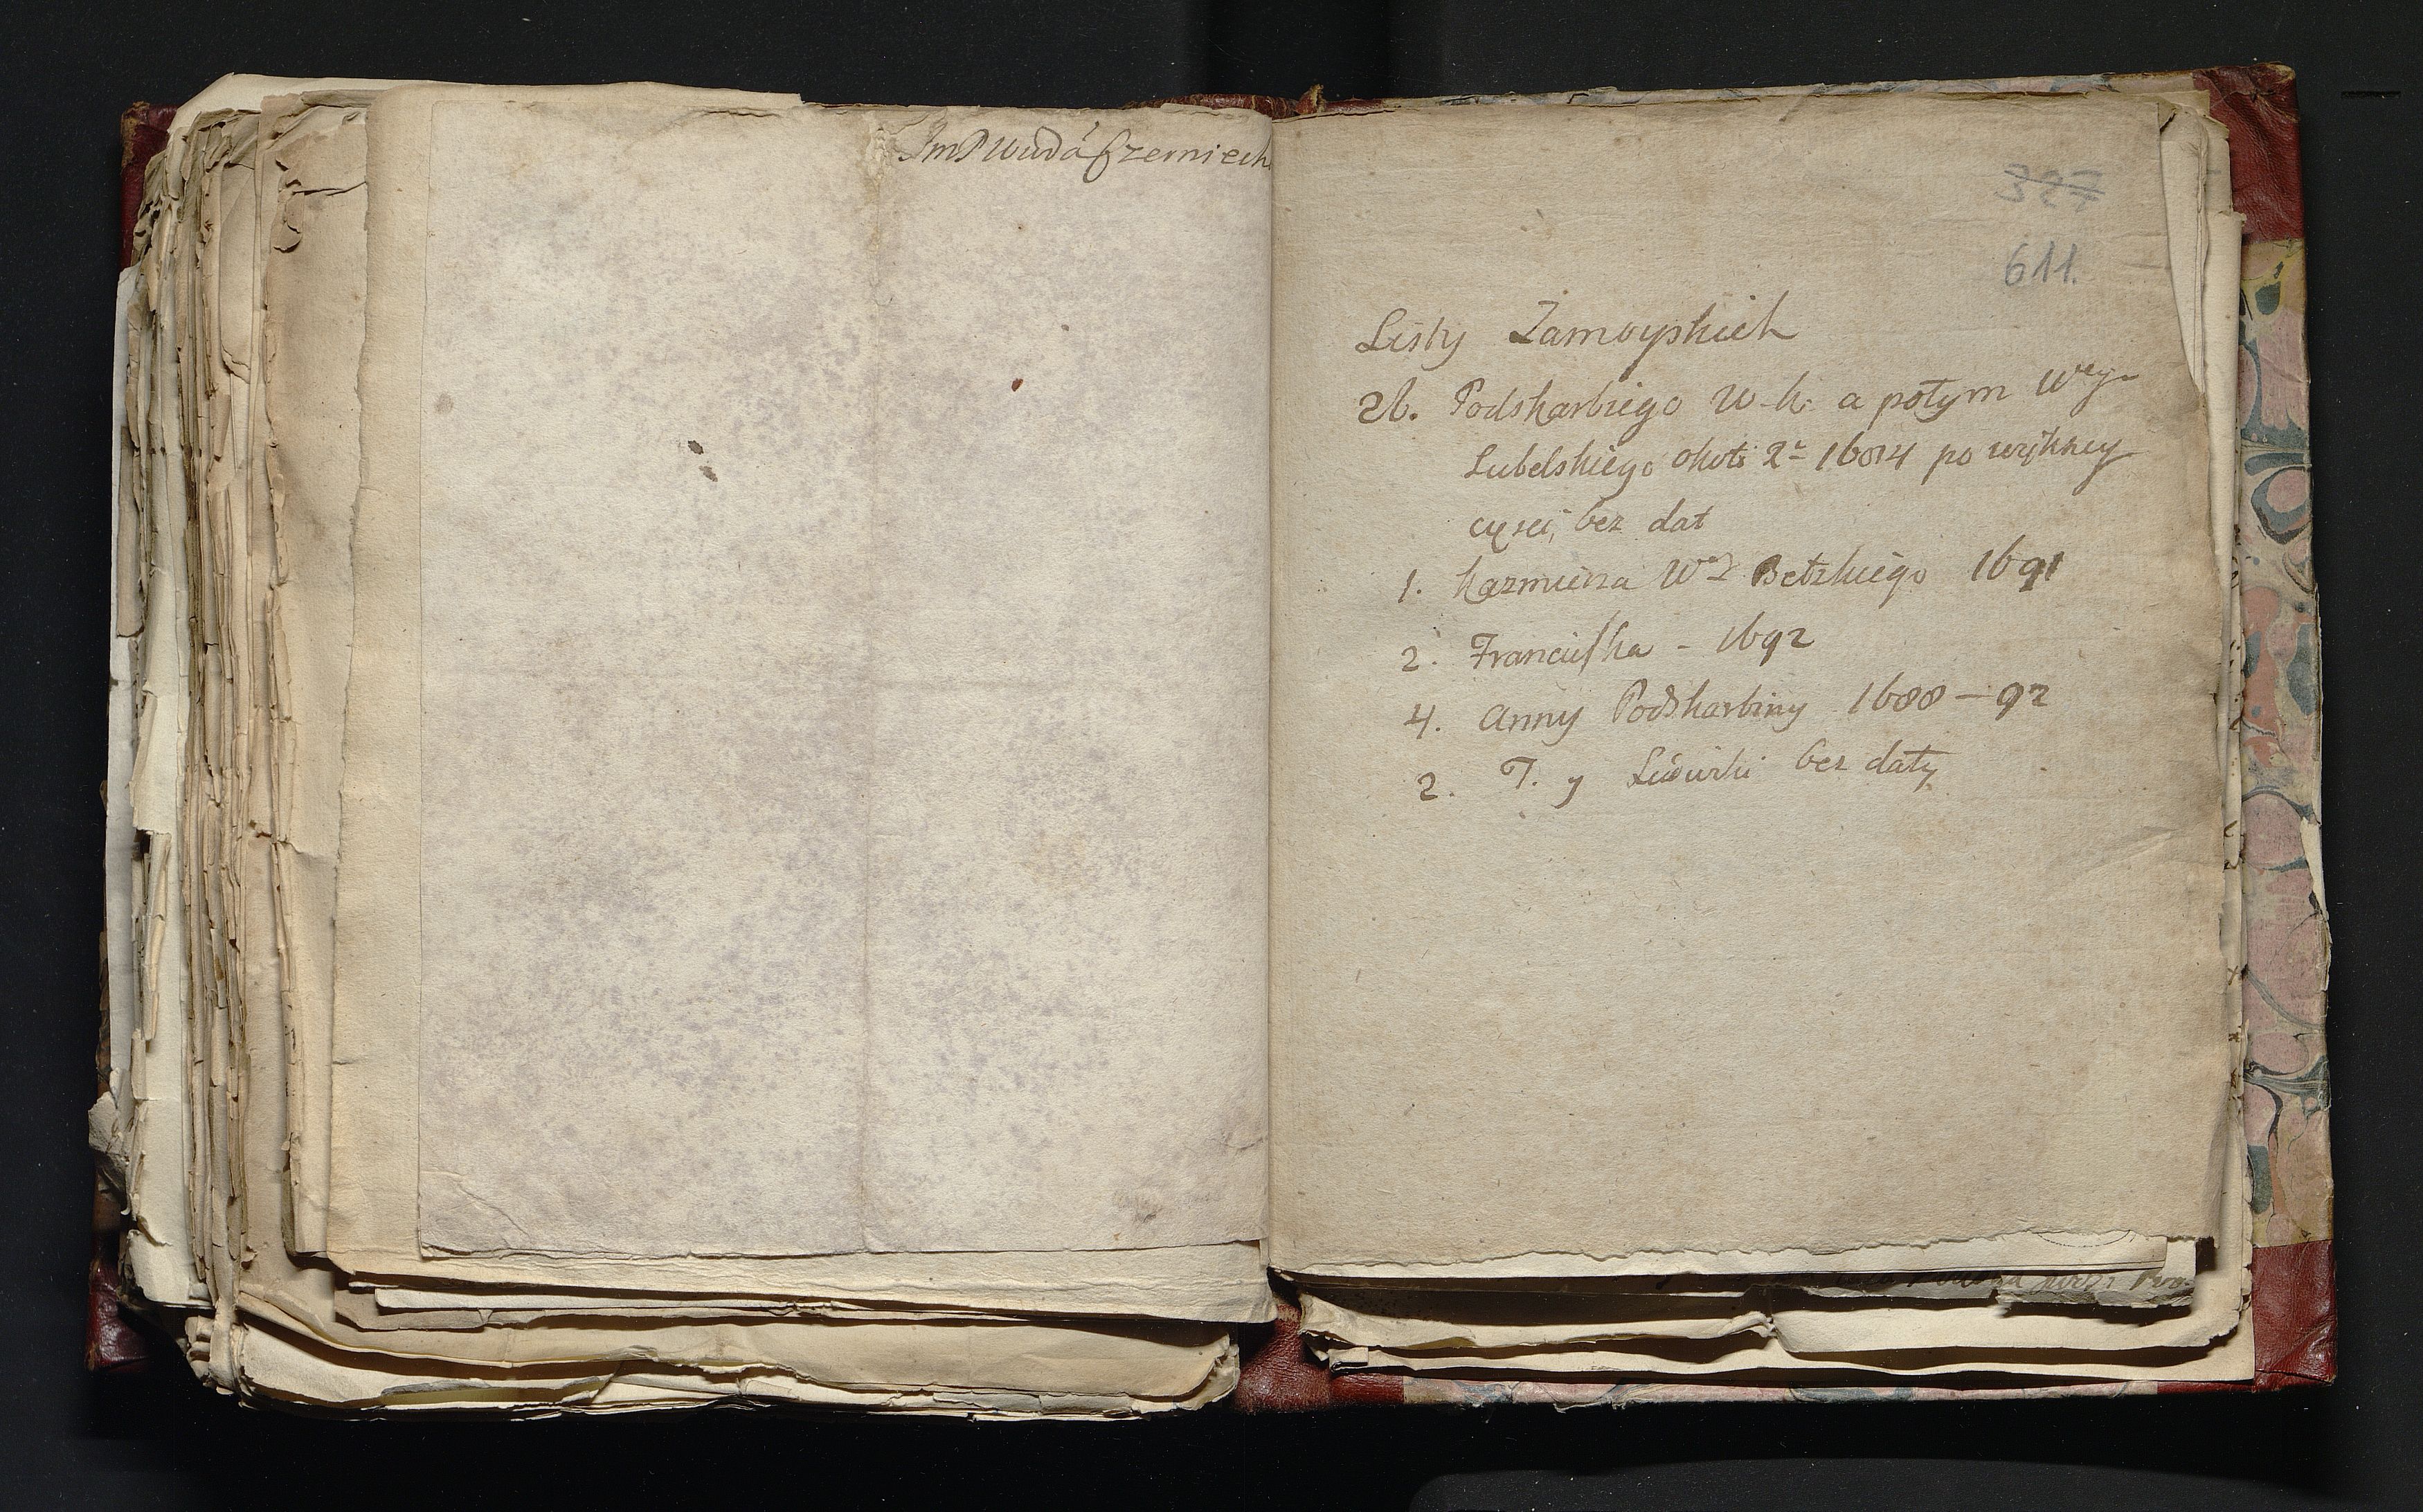 JmP Wudá Czerniech
327
611.
Listy Zamoyskich
26. Podskarbiego W. k. a potym Wey-
Lubelskiego około 2r 1684 po większey
częsci, bez dat
1. Kazmierza Wdy Bełzkiego 1691
2. Franciszka - 1692
4. Anny Podskarbiny 1688 - 92
2. T. y bez daty